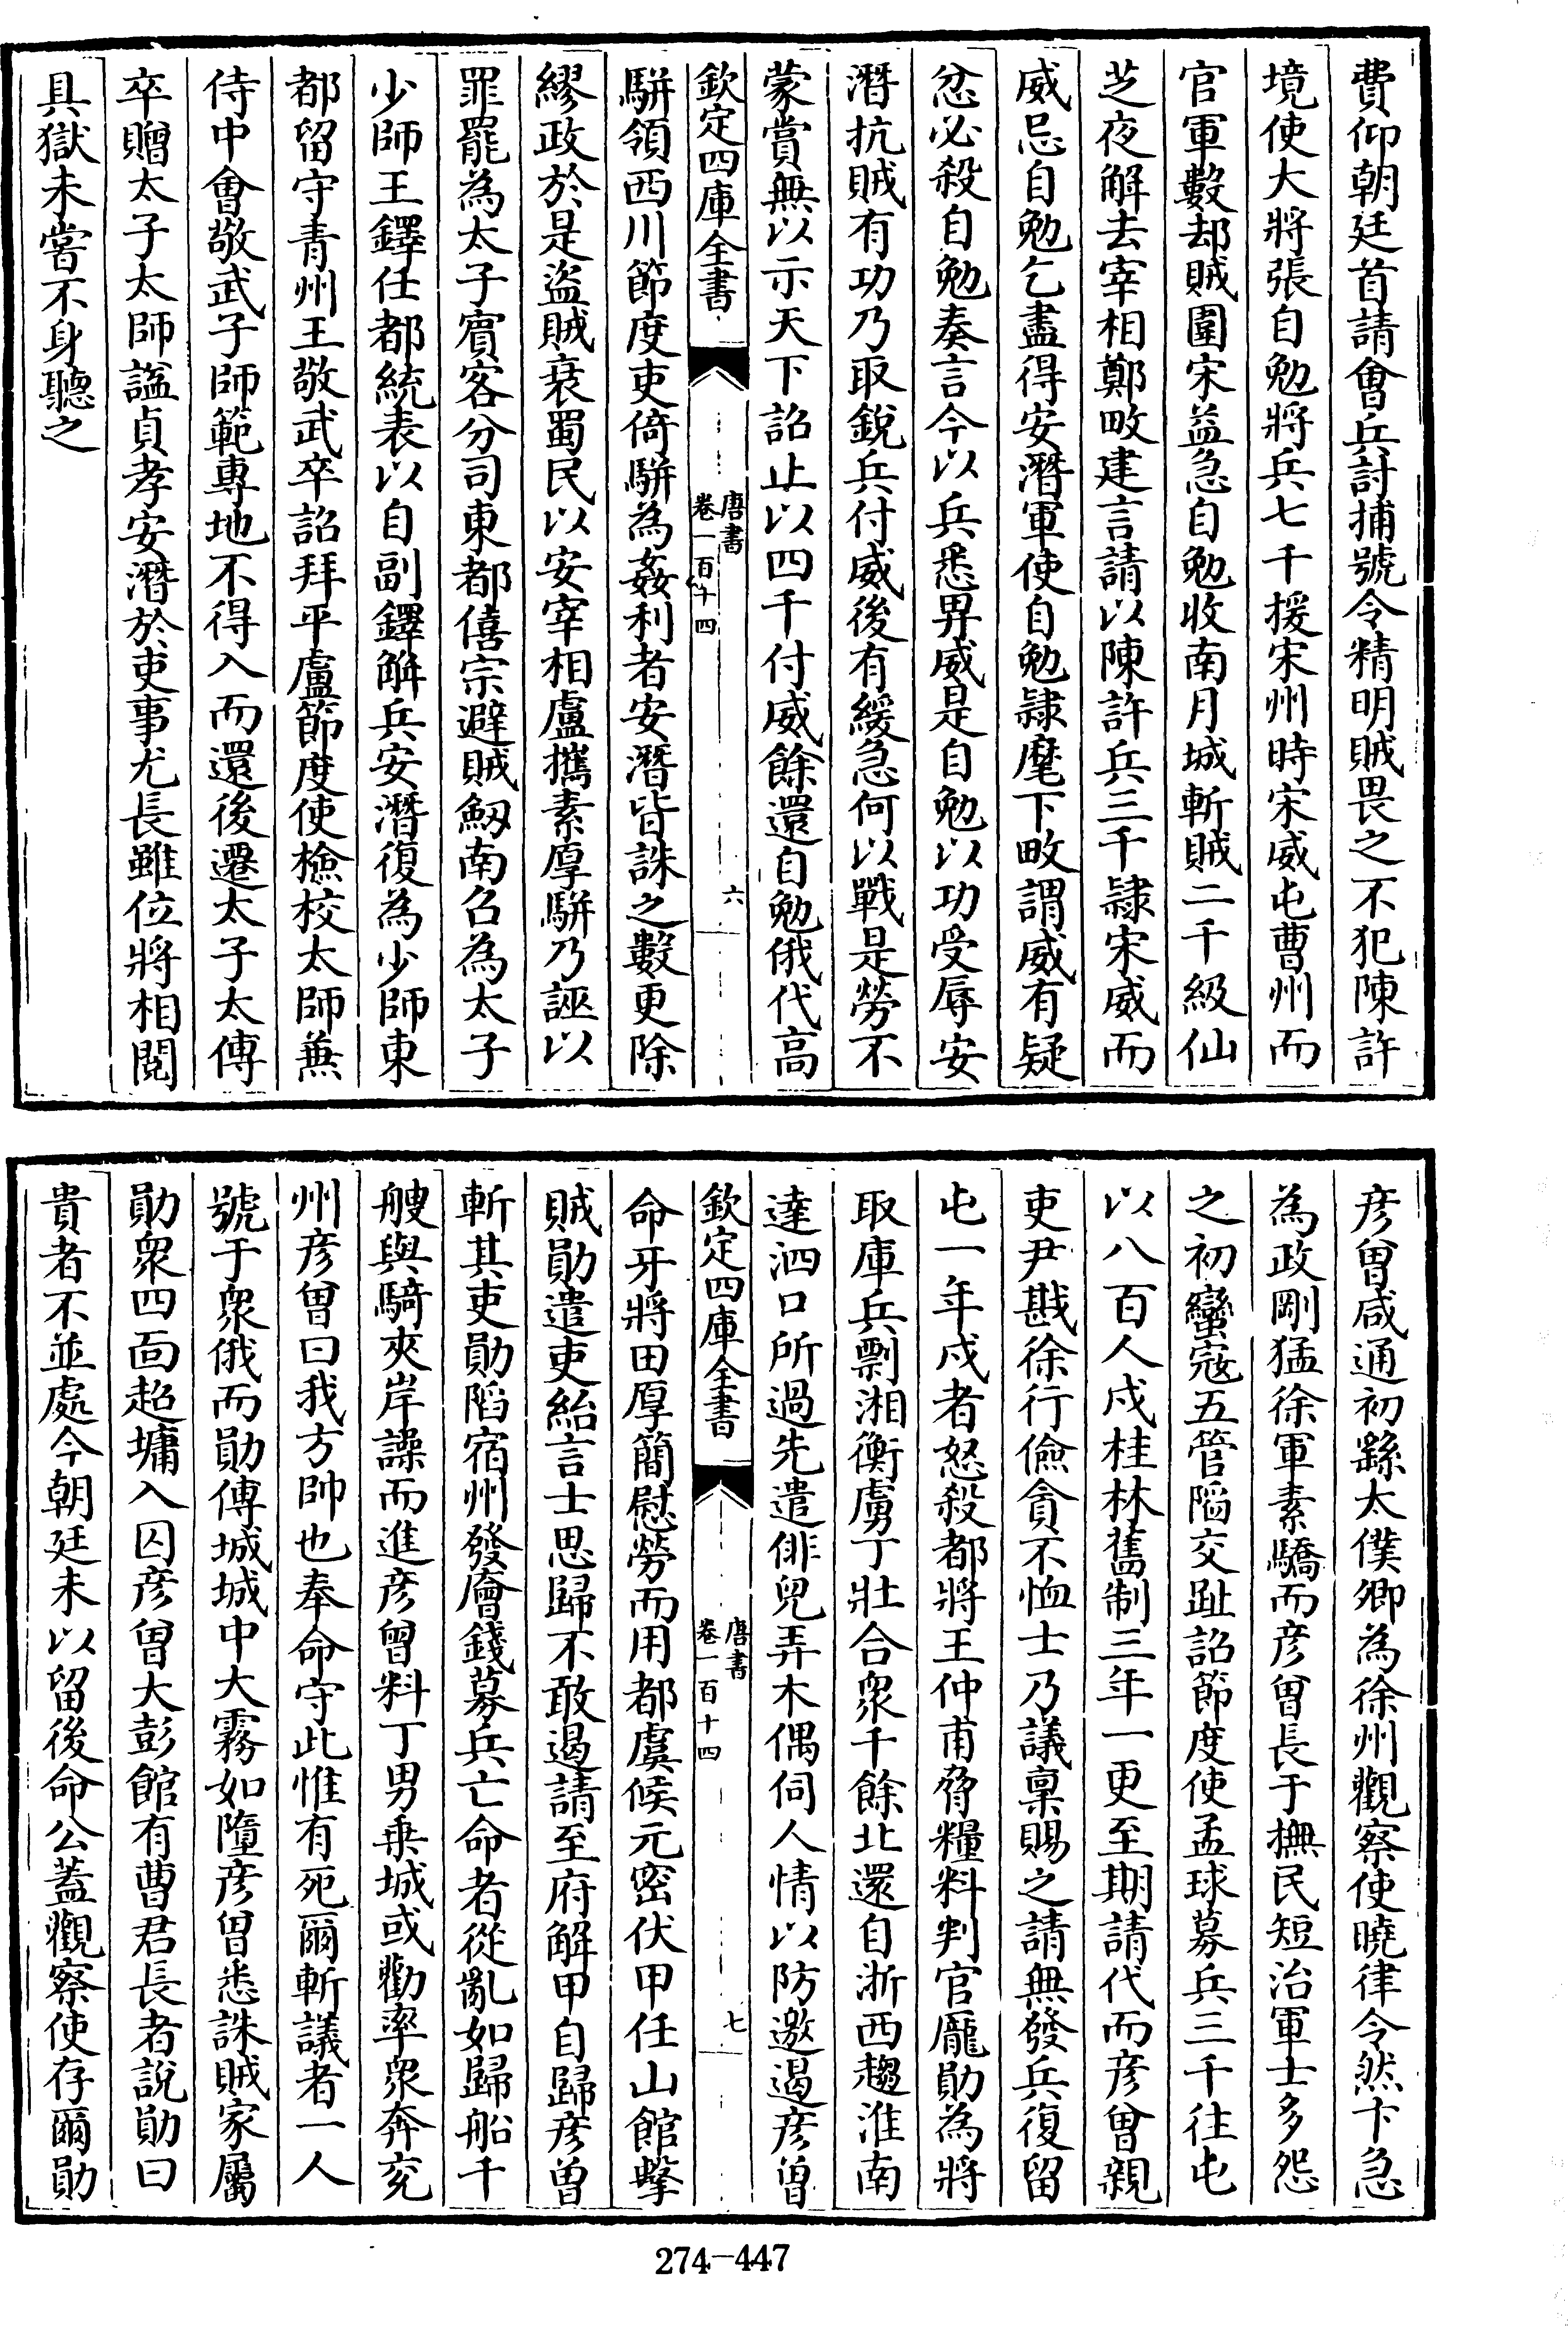 費仰朝廷首請會兵討捕號令精明賊畏之不犯陳許
境使大將張自勉將兵七千援宋州時宋威屯曹州而
官軍數却賊圍宋益急自勉收南月城斬賊二千級仙
芝夜解去宰相鄭畋建言請以陳許兵三千隷宋威而
威忌自勉乞盡得安潛軍使自勉隷麾下畋謂威有疑
忿必殺自勉奏言今以兵悉畀威是自勉以功受辱安
潛抗賊有功乃取銳兵付威後有緩急何以戰是勞不
蒙賞無以示天下詔止以四千付威餘還自勉俄代高
欽定四庫全書
唐書
卷一百十四
六
駢領西川節度吏倚駢為姦利者安潛皆誅之數更除
繆政於是盜賊衰蜀民以安宰相盧攜素厚駢乃誣以
罪罷為太子賓客分司東都僖宗避賊劒南召為太子
少師王鐸任都統表以自副鐸解兵安潛復為少師東
都留守青州王敬武卒詔拜平盧節度使檢校太師兼
侍中會敬武子師範專地不得入而還後遷太子太傅
卒贈太子太師謚貞孝安潛於吏事尤長雖位將相閱
具獄未嘗不身聽之
彥曾咸通初繇太僕卿為徐州觀察使曉律令然卞急
為政剛猛徐軍素驕而彥曾長于撫民短治軍士多怨
之初蠻寇五管陷交趾詔節度使孟球募兵三千往屯
以八百人戍桂林舊制三年一更至期請代而彥曾親
吏尹戡徐行儉貪不恤士乃議稟賜之請無發兵復留
屯一年戍者怒殺都將王仲甫脅糧料判官龐勛為將
取庫兵剽湘衡虜丁壯合衆千餘北還自浙西趨淮南
達泗口所過先遣俳兒弄木偶伺人情以防邀遏彥曾
欽定四庫全書
唐書
卷一百十四
七
命牙將田厚簡慰勞而用都虞候元密伏甲任山館擊
賊勛遣吏紿言士思歸不敢遏請至府解甲自歸彥曾
斬其吏勛陷宿州發廥錢募兵亡命者從亂如歸船千
艘與騎夾岸譟而進彥曾料丁男乗城或勸率衆奔兖
州彥曾曰我方帥也奉命守此惟有死爾斬議者一人
號于衆俄而勛傅城城中大霧如墮彥曾悉誅賊家屬
勛衆四面超墉入囚彥曾大彭館有曹君長者說勛曰
貴者不並處今朝廷未以留後命公蓋觀察使存爾勛
274-447